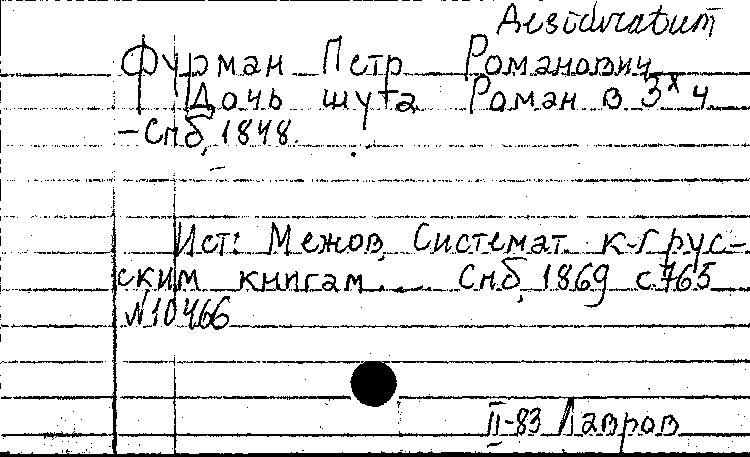 Desideratum
Фурман Петр Романович
Дочь шута Роман в 3х ч
-Спб, 1848.
Ист: Межов, Системат. к-г рус-
ским книгам... Спб, 1869 с.765
N10466
II-83 Лавров